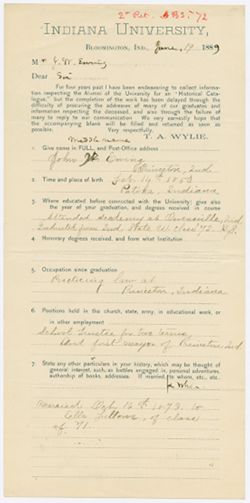 2d Ret. A.B.S. '72
INDIANA UNIVERSITY,
BLOOMINGTON, IND., June, 19 1889
Mr J. W. Ewing
Dear Sir
For four years past I have been endeavoring to collect information respecting the Alumni of the University for an "Historical Catalogue," but the completion of the work has been delayed through the difficulty of procuring the addresses of many of our graduates and information respecting the deceased, and also through the failure of many to reply to our communication. We very earnestly hope that the accompanying blank will be filled and returned as soon as possible.
Very respectfully,
T. A. WYLIE.
Middle name
1. Give name in FULL, and Post-Office address
John W. Ewing
Princeton, Ind
2. Time and place of birth Feb. 14th 1853
Patoka, Indiana
3. Where educated before connected with the University: give also the year of your graduation, and degrees received in course
Attended academy at Owensville, Ind
Graduated from Ind. State U. class '72. B.S.
4. Honorary degrees received, and from what Institution
5. Occupation since graduation
Practicing law at
Princeton, Indiana
6. Positions held in the church, state, army, in educational work, or in other employment
School Trustee for two terms,
And first mayor of Princeton, Ind
7. State any other particulars in your history, which may be thought of general interest, such as battles engaged in, personal adventures, authorship of books, addresses. If married, to whom, etc., etc.
& When
Married Oct 16th 1873. to
Ella Fellows, of class
of '71.